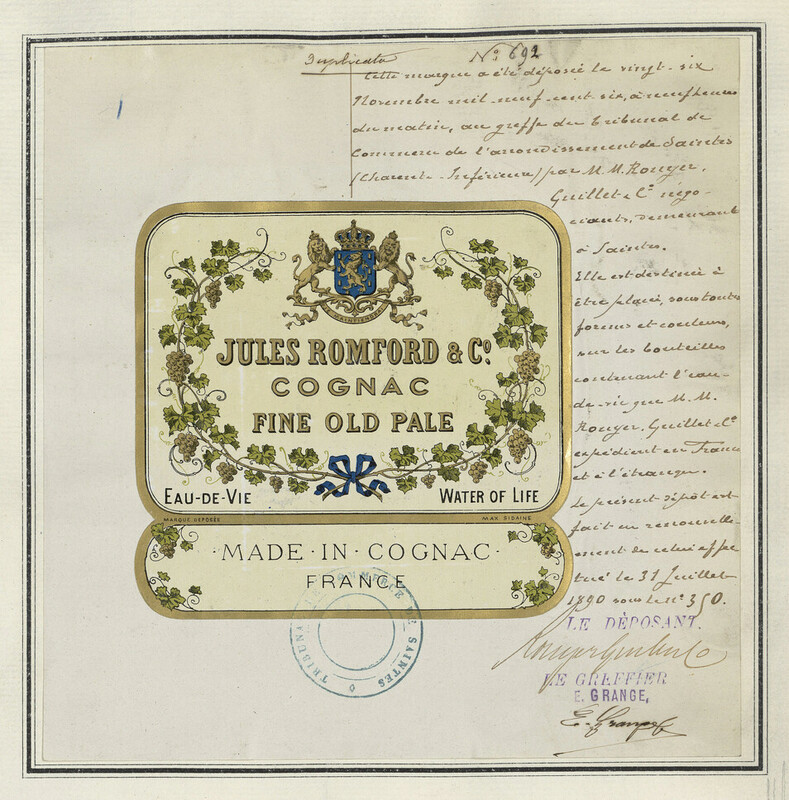 Duplicata
N° 692
Cette marque a été déposée le vingt-six
Novembre mil-neuf-cent six, à neuf heures
du matin, au greffe du Tribunal de
Commerce de l'arrondissement de Saintes
(Charente-Inférieure) par M.M. Rouyer,
Guillet & Cie négo-
ciants, demeurant
à Saintes.
Elle est destinée à
être placée, sous toutes
formes et couleurs,
sur les bouteilles
contenant l'eau-
de-vie que M.M.
Rouyer, Guillet & Cie
expédient en France
et à l'étranger.
Le présent dépôt est
fait en renouvelle-
ment de celui effec
tué le 31 Juillet
1890 sous le N° 350.
LE DÉPOSANT.
LE GREFFIER
E. GRANGE,
E. Grange
JE MAINTIENDRAI
JULES ROMFORD & Co.
COGNAC
FINE OLD PALE
EAU-DE-VIE
WATER OF LIFE
MARQUE DÉPOSÉE
MAX. SIDAINE
·MADE·IN·COGNAC·
FRANCE
TRIBUNAL DE COMMERCE DE SAINTES